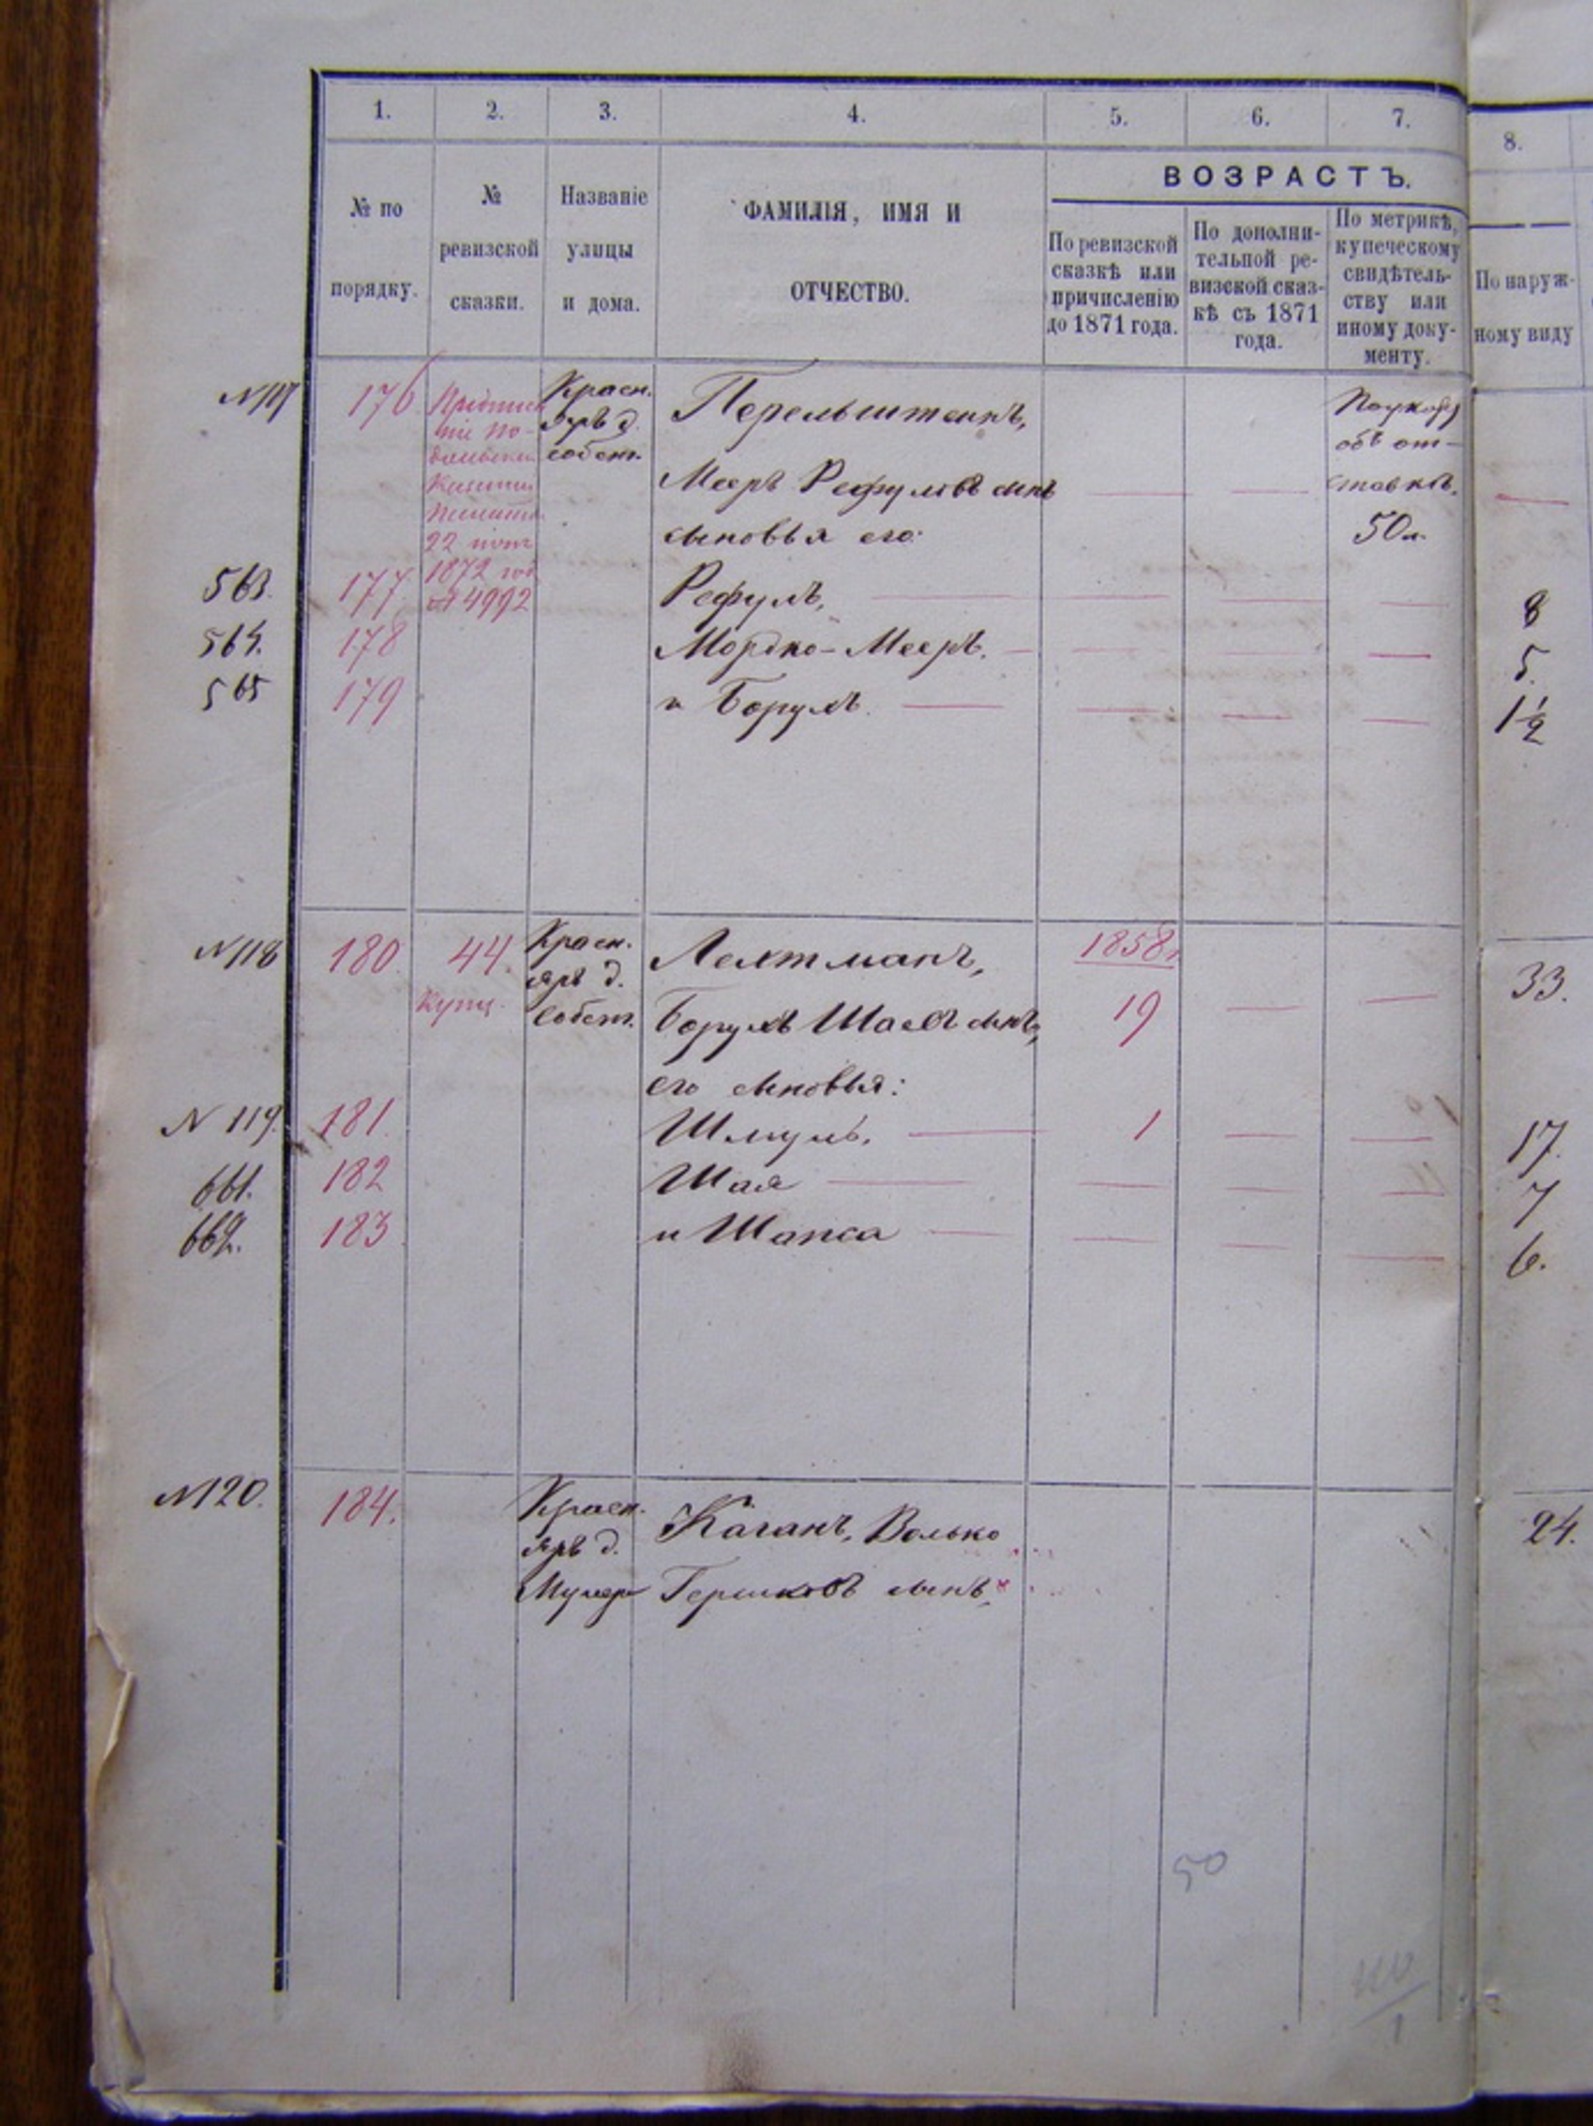 1. 2. 3. 4. 5. 6. 7. 8.
ВОЗРАСТЪ.
№ по порядку.
№ ревизской сказки.
Названіе улицы и дома.
ФАМИЛІЯ, ИМЯ И ОТЧЕСТВО.
По ревизской сказкѣ или причисленію до 1871 года.
По дополнительной ревизской сказкѣ съ 1871 года.
По метрикѣ, купеческому свидѣтельству или иному документу.
По наружному виду
N117 176
22
1872 год
4992
Красн.
яръ д.
собств.
Перельштейнъ,
Мееръ Рефуловъ сынъ
сыновья его:
объ от-
ставкѣ.
50 л.
563. 177. Рефулъ, 8
564. 178 Мордко-Мееръ. 5.
565 179 и Борухъ. 1½
N118 180. 44 Красн. Лехтманъ, 1858 г. 33.
Купц. яръ д.
собств. Борухъ Шаевъ сынъ, 19
его сыновья:
N 119. 181. Шмуль. 1 17.
661. 182 Шая 7
662. 183 и Шапса 6.
N120. 184. Красн. Каганъ, Волько 24.
яръ д.
Гершковъ сынъ,
50